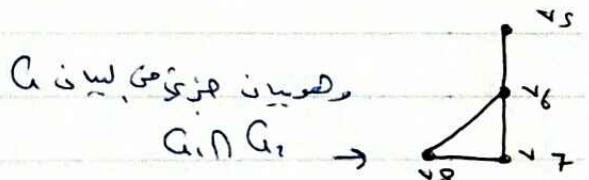 وهو بيان جزئي من لبيان G
G₁ ∩ G₂ →
v5
v6
v7
v8